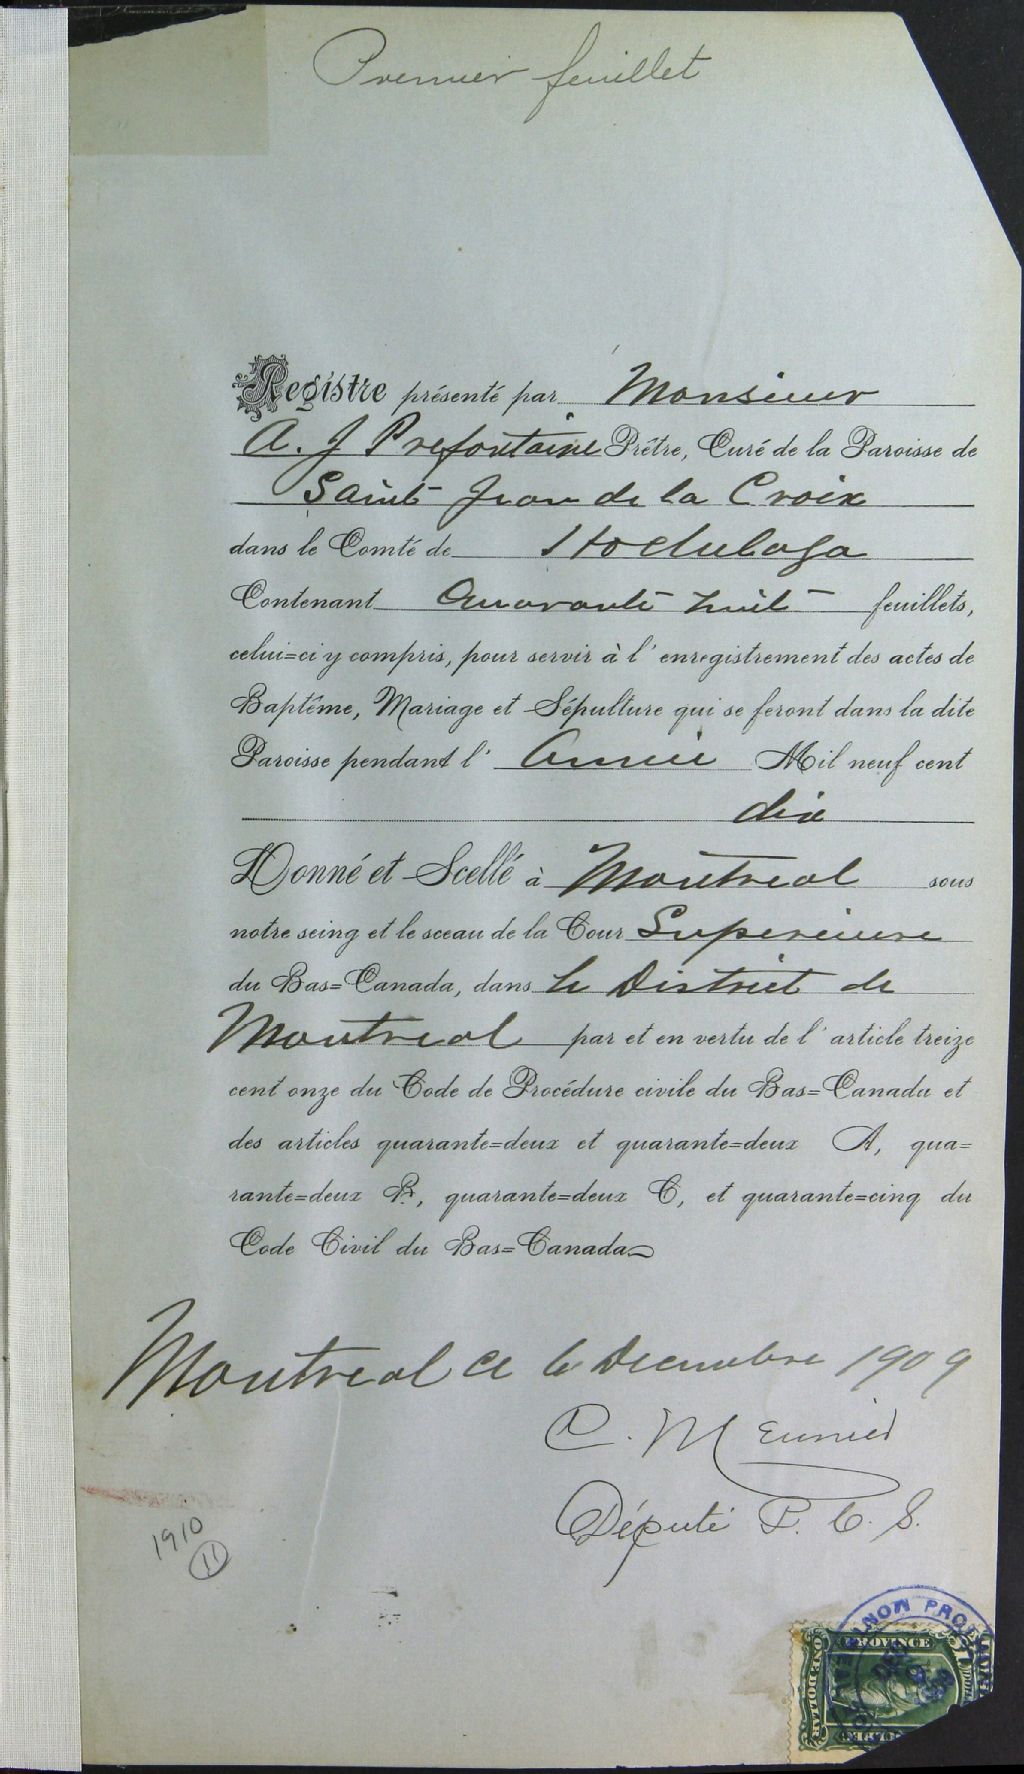 Premier feuillet
Registre présenté par Monsieur
A. J Prefontaine Prêtre, Curé de la Paroisse de
Saint Jean de la Croix
dans le Comté de Hochelaga
Contenant Quarante huit feuillets,
celui=ci y compris, pour servir à l'enregistrement des actes de
Baptême, Mariage et Sépulture qui se feront dans la dite
Paroisse pendant l' Année Mil neuf cent
dix
Donné et Scellé à Montreal sous
notre seing et le sceau de la Cour Superieure
du Bas=Canada, dans le District de
Montreal par et en vertu de l'article treize
cent onze du Code de Procédure civile du Bas=Canada et
des articles quarante=deux et quarante=deux A, qua=
rante=deux B, quarante=deux C, et quarante=cinq du
Code Civil du Bas=Canada
Montreal ce 6 Decembre 1909
C. Meunier
Député P. C. S.
1910
11
PROVINCE
ONE DOLLAR